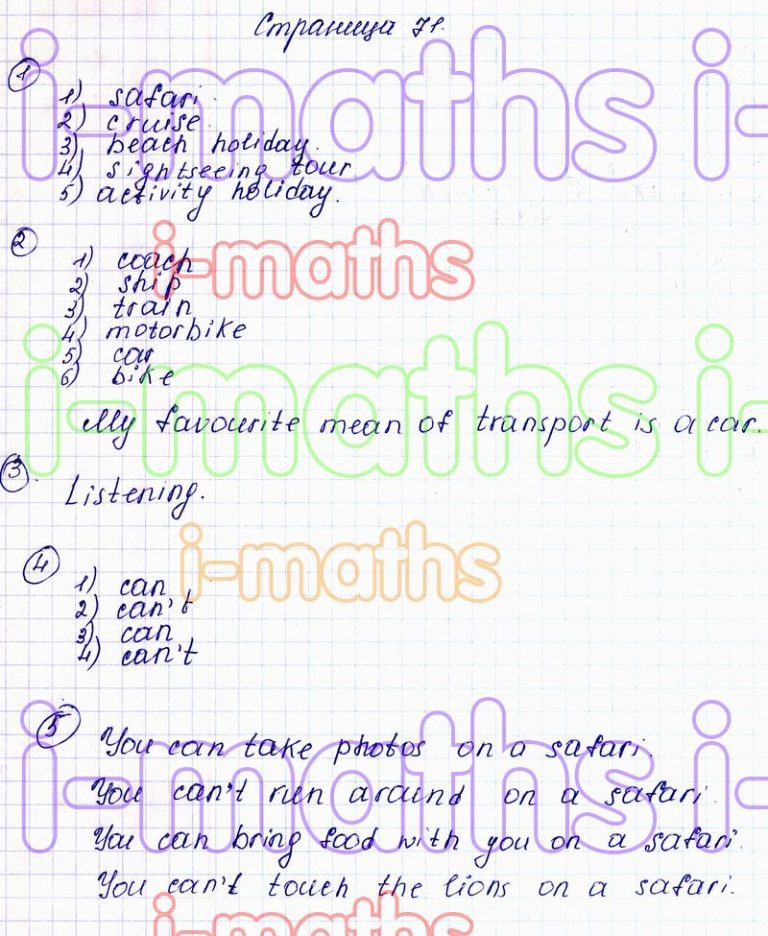 Страница 71.
1
1) safari.
2) cruise.
3) beach holiday.
4) sightseeing tour.
5) activity holiday.
2
1) coach
2) ship
3) train
4) motorbike
5) car
6) bike
My favourite mean of transport is a car.
3
Listening.
4
1) can
2) can't
3) can
4) can't
5
You can take photos on a safari.
You can't run around on a safari.
You can bring food with you on a safari.
You can't touch the lions on a safari.
i-maths i-
i-maths
i-maths i-
i-maths
i-maths i-
i-maths